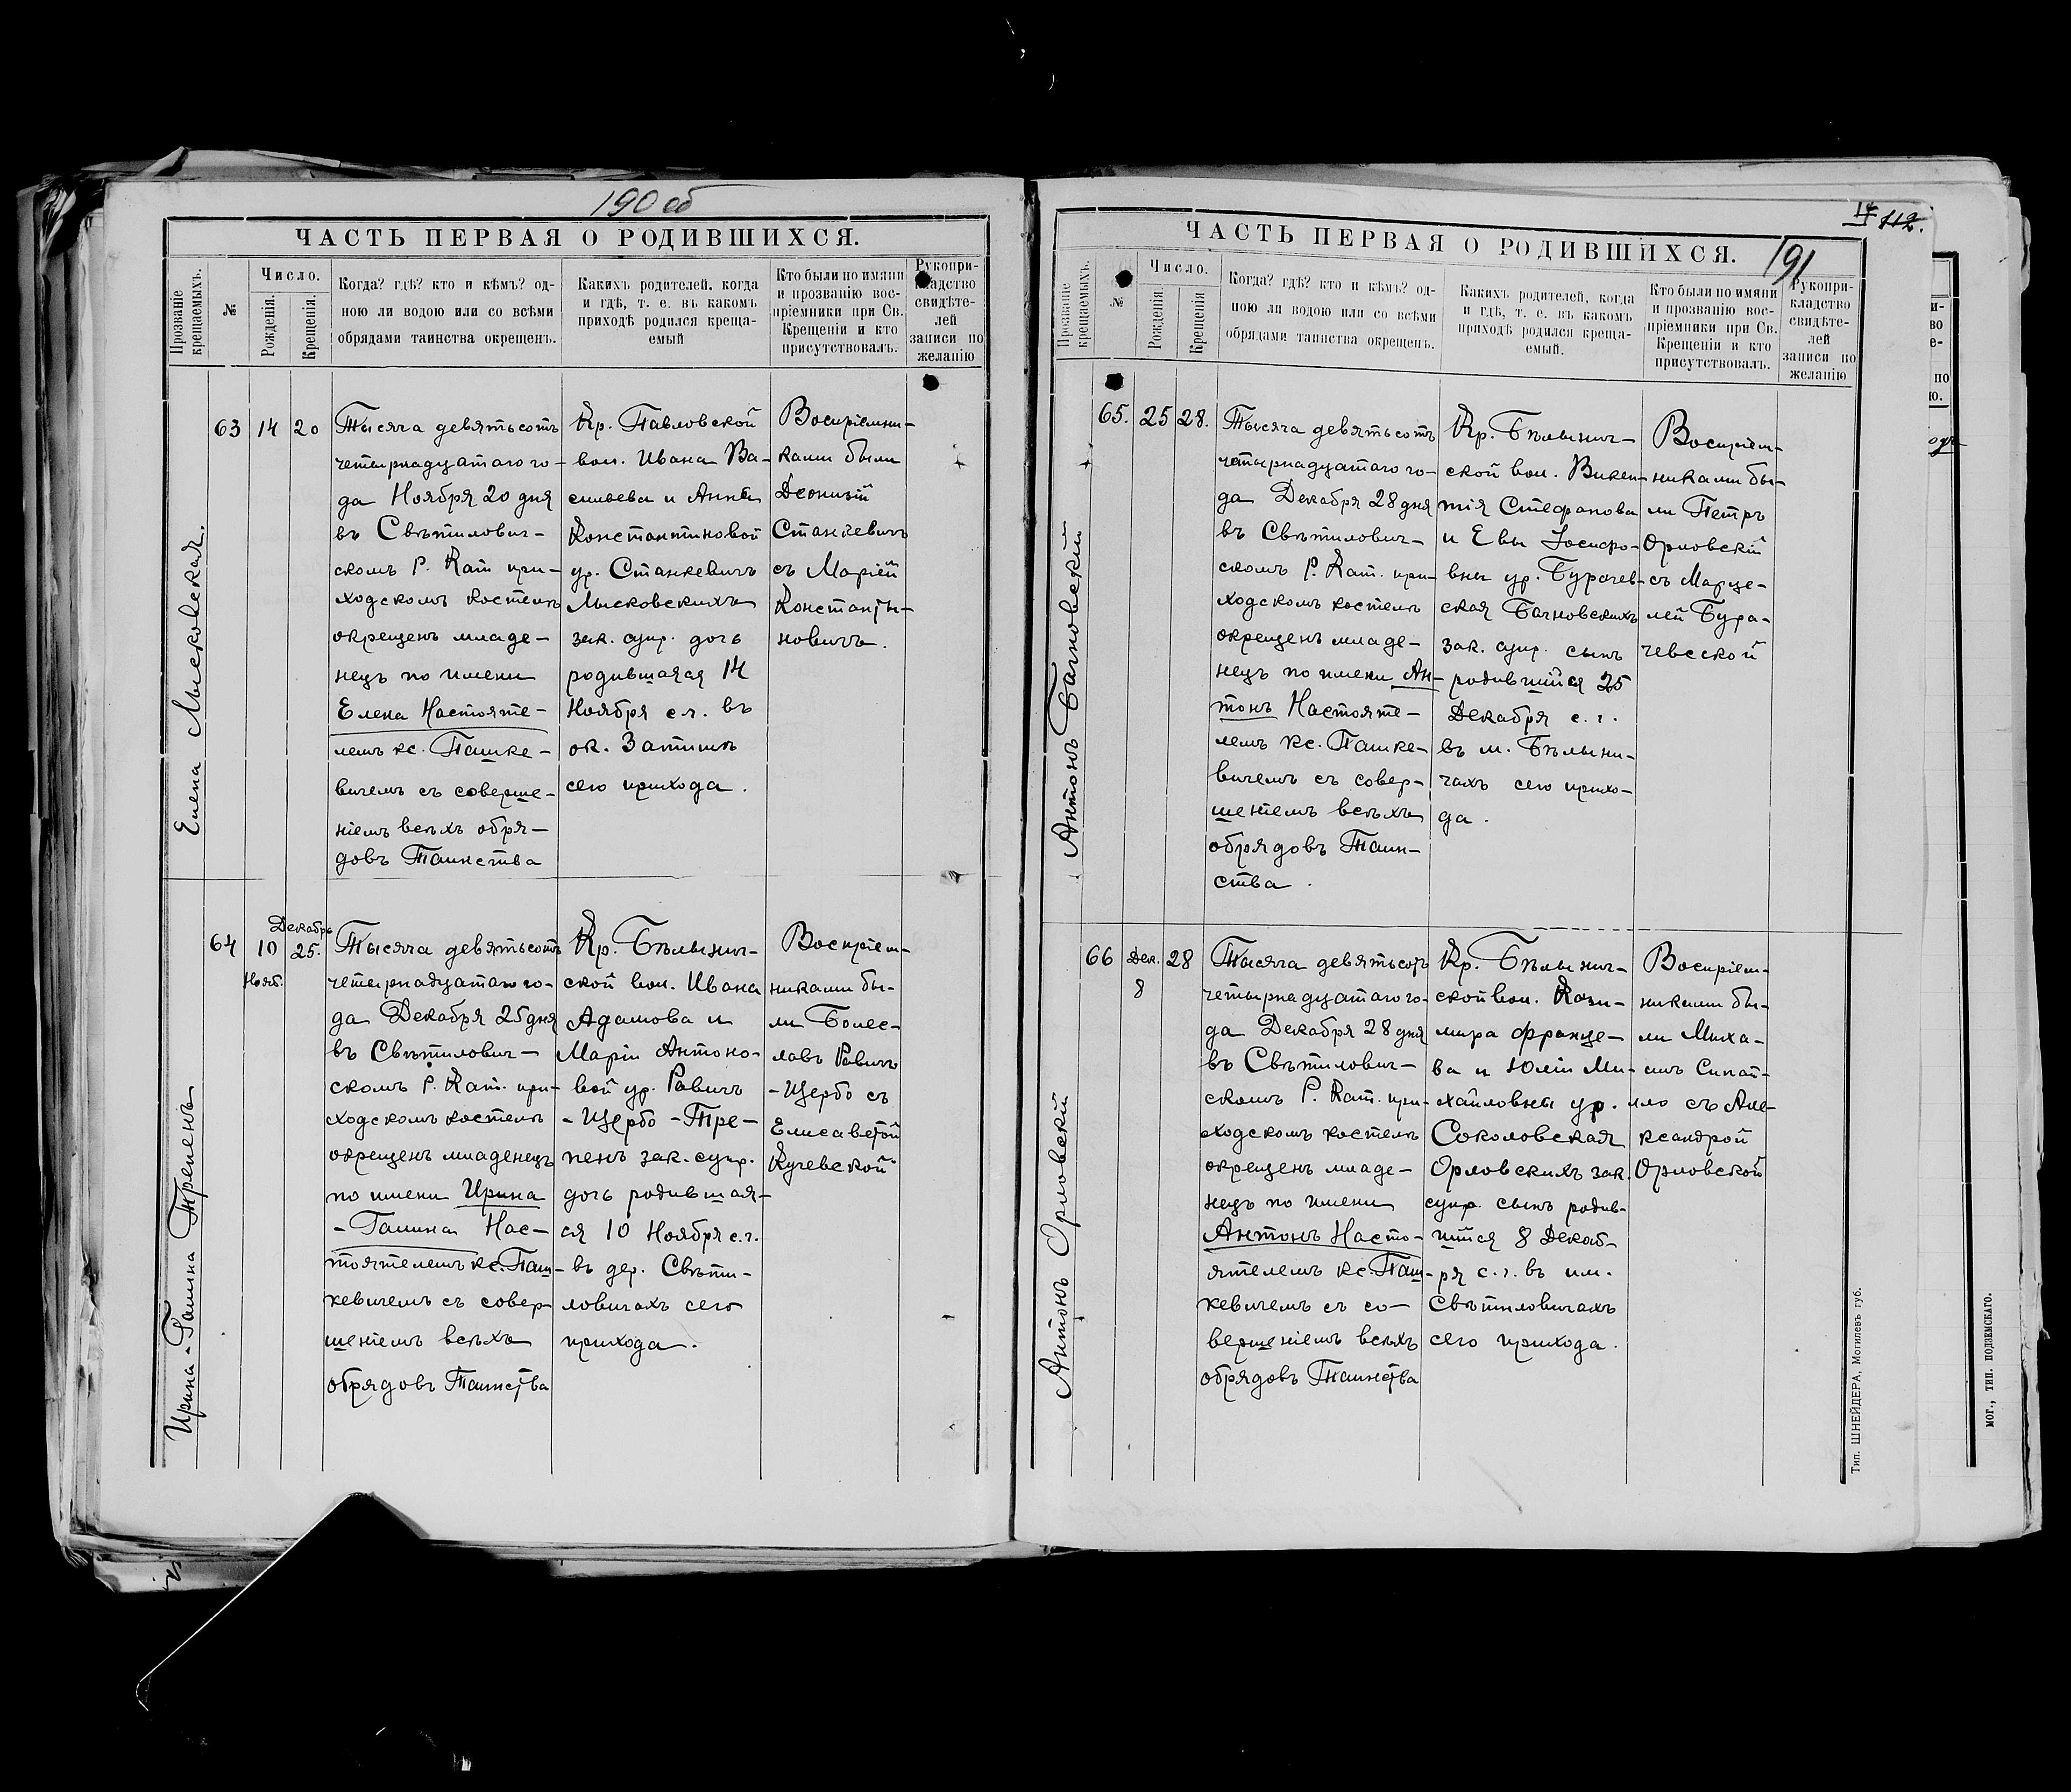 190 об
ЧАСТЬ ПЕРВАЯ О РОДИВШИХСЯ.
Прозваніе крещаемыхъ.
№
Число.
Рожденія.
Крещенія.
Когда? гдѣ? кто и кѣмъ? од-
ною ли водою или со всѣми
обрядами таинства окрещенъ.
Какихъ родителей, когда
и гдѣ, т. е. въ какомъ
приходѣ родился креща-
емый
Кто были по имяни
и прозванію вос-
пріемники при Св.
Крещеніи и кто
присутствовалъ.
Рукопри-
кладство
свидѣте-
лей
записи по
желанію
Елена Лысковская.
63
14
20
Тысяча девятьсотъ
четырнадцатаго го-
да Ноября 20 дня
въ Свѣтилович-
скомъ Р. Кат при-
ходскомъ костелѣ
окрещенъ младе-
нецъ по имени
Елена Настояте-
лемъ кс. Пашке-
вичемъ съ соверше-
ніемъ всѣхъ обря-
довъ Таинства
Кр. Павловской
вол. Ивана Ва-
сильева и Анны
Константиновой
ур. Станкевичъ
Лысковскихъ
зак. супр. дочь
родившаяся 14
Ноября с.г. въ
ок. Затишѣ
сего прихода.
Воспріемни-
ками были
Деонизій
Станкевичъ
съ Маріей
Константи-
новичъ.
Ирина-Галина Трепенъ
64
10
Нояб.
Декабрь
25.
Тысяча девятьсотъ
четырнадцатаго го-
да Декабря 25 дня
въ Свѣтилович-
скомъ Р. Кат. при-
ходскомъ костелѣ
окрещенъ младенецъ
по имени Ирина
-Галина Нас-
тоятелемъ кс. Паш-
кевичемъ съ совер-
шеніемъ всѣхъ
обрядовъ Таинства
Кр. Бѣлынич-
ской вол. Ивана
Адамова и
Маріи Антоно-
вой ур. Равичъ
-Щербо-Тре-
пенъ зак. супр.
дочь родившая-
ся 10 Ноября с.г.
въ дер. Свѣти-
ловичахъ сего
прихода.
Воспріем-
никами бы-
ли Болес-
лавъ Равичъ
-Щербо съ
Елисаветой
Кучевской
14 112.
191
ЧАСТЬ ПЕРВАЯ О РОДИВШИХСЯ.
Прозваніе крещаемыхъ.
№
Число.
Рожденія
Крещенія
Когда? гдѣ? кто и кѣмъ? од-
ною ли водою или со всѣми
обрядами таинства окрещенъ.
Какихъ родителей, когда
и гдѣ, т. е. въ какомъ
приходѣ родился креща-
емый.
Кто были по имяни
и прозванію вос-
пріемники при Св.
Крещеніи и кто
присутствовалъ.
Рукопри-
кладство
свидѣте-
лей
записи по
желанію
Антонъ Бачновскій
65.
25
28.
Тысяча девятьсотъ
четырнадцатаго го-
да Декабря 28 дня
въ Свѣтилович-
скомъ Р. Кат. при-
ходскомъ костелѣ
окрещенъ младе-
нецъ по имени Ан-
тонъ Настояте-
лемъ кс. Пашке-
вичемъ съ совер-
шеніемъ всѣхъ
обрядовъ Таин-
ства.
Кр. Бѣлынич-
ской вол. Викен-
тія Стефанова
и Евы Іосифо-
вны ур. Бурачев-
ская Бачновскихъ
зак. супр. сынъ
родившійся 25
Декабря с. г.
въ м. Бѣлыни-
чахъ сего прихо-
да.
Воспріем-
никами бы-
ли Петръ
Орловскій
съ Марце-
лей Бура-
чевской
Антонъ Орловскій
66
Дек.
8
28
Тысяча девятьсотъ
четырнадцатаго го-
да Декабря 28 дня
въ Свѣтилович-
скомъ Р. Кат. при-
ходскомъ костелѣ
окрещенъ младе-
нецъ по имени
Антонъ Насто-
ятелемъ кс. Паш-
кевичемъ съ со-
вершеніемъ всѣхъ
обрядовъ Таинства
Кр. Бѣлынич-
ской вол. Кази-
мира Францe-
ва и Юліи Ми-
хайловны ур.
Соколовская
Орловскихъ зак.
супр. сынъ родив-
шійся 8 Декаб-
ря с.г. въ им.
Свѣтиловичахъ
сего прихода.
Воспріем-
никами бы-
ли Миха-
илъ Синай-
ло съ Але-
ксандрой
Орловской
Тип. ШНЕЙДЕРА, Могилевъ губ.
МОГ., ТИП. ПОДЗЕМСКАГО.